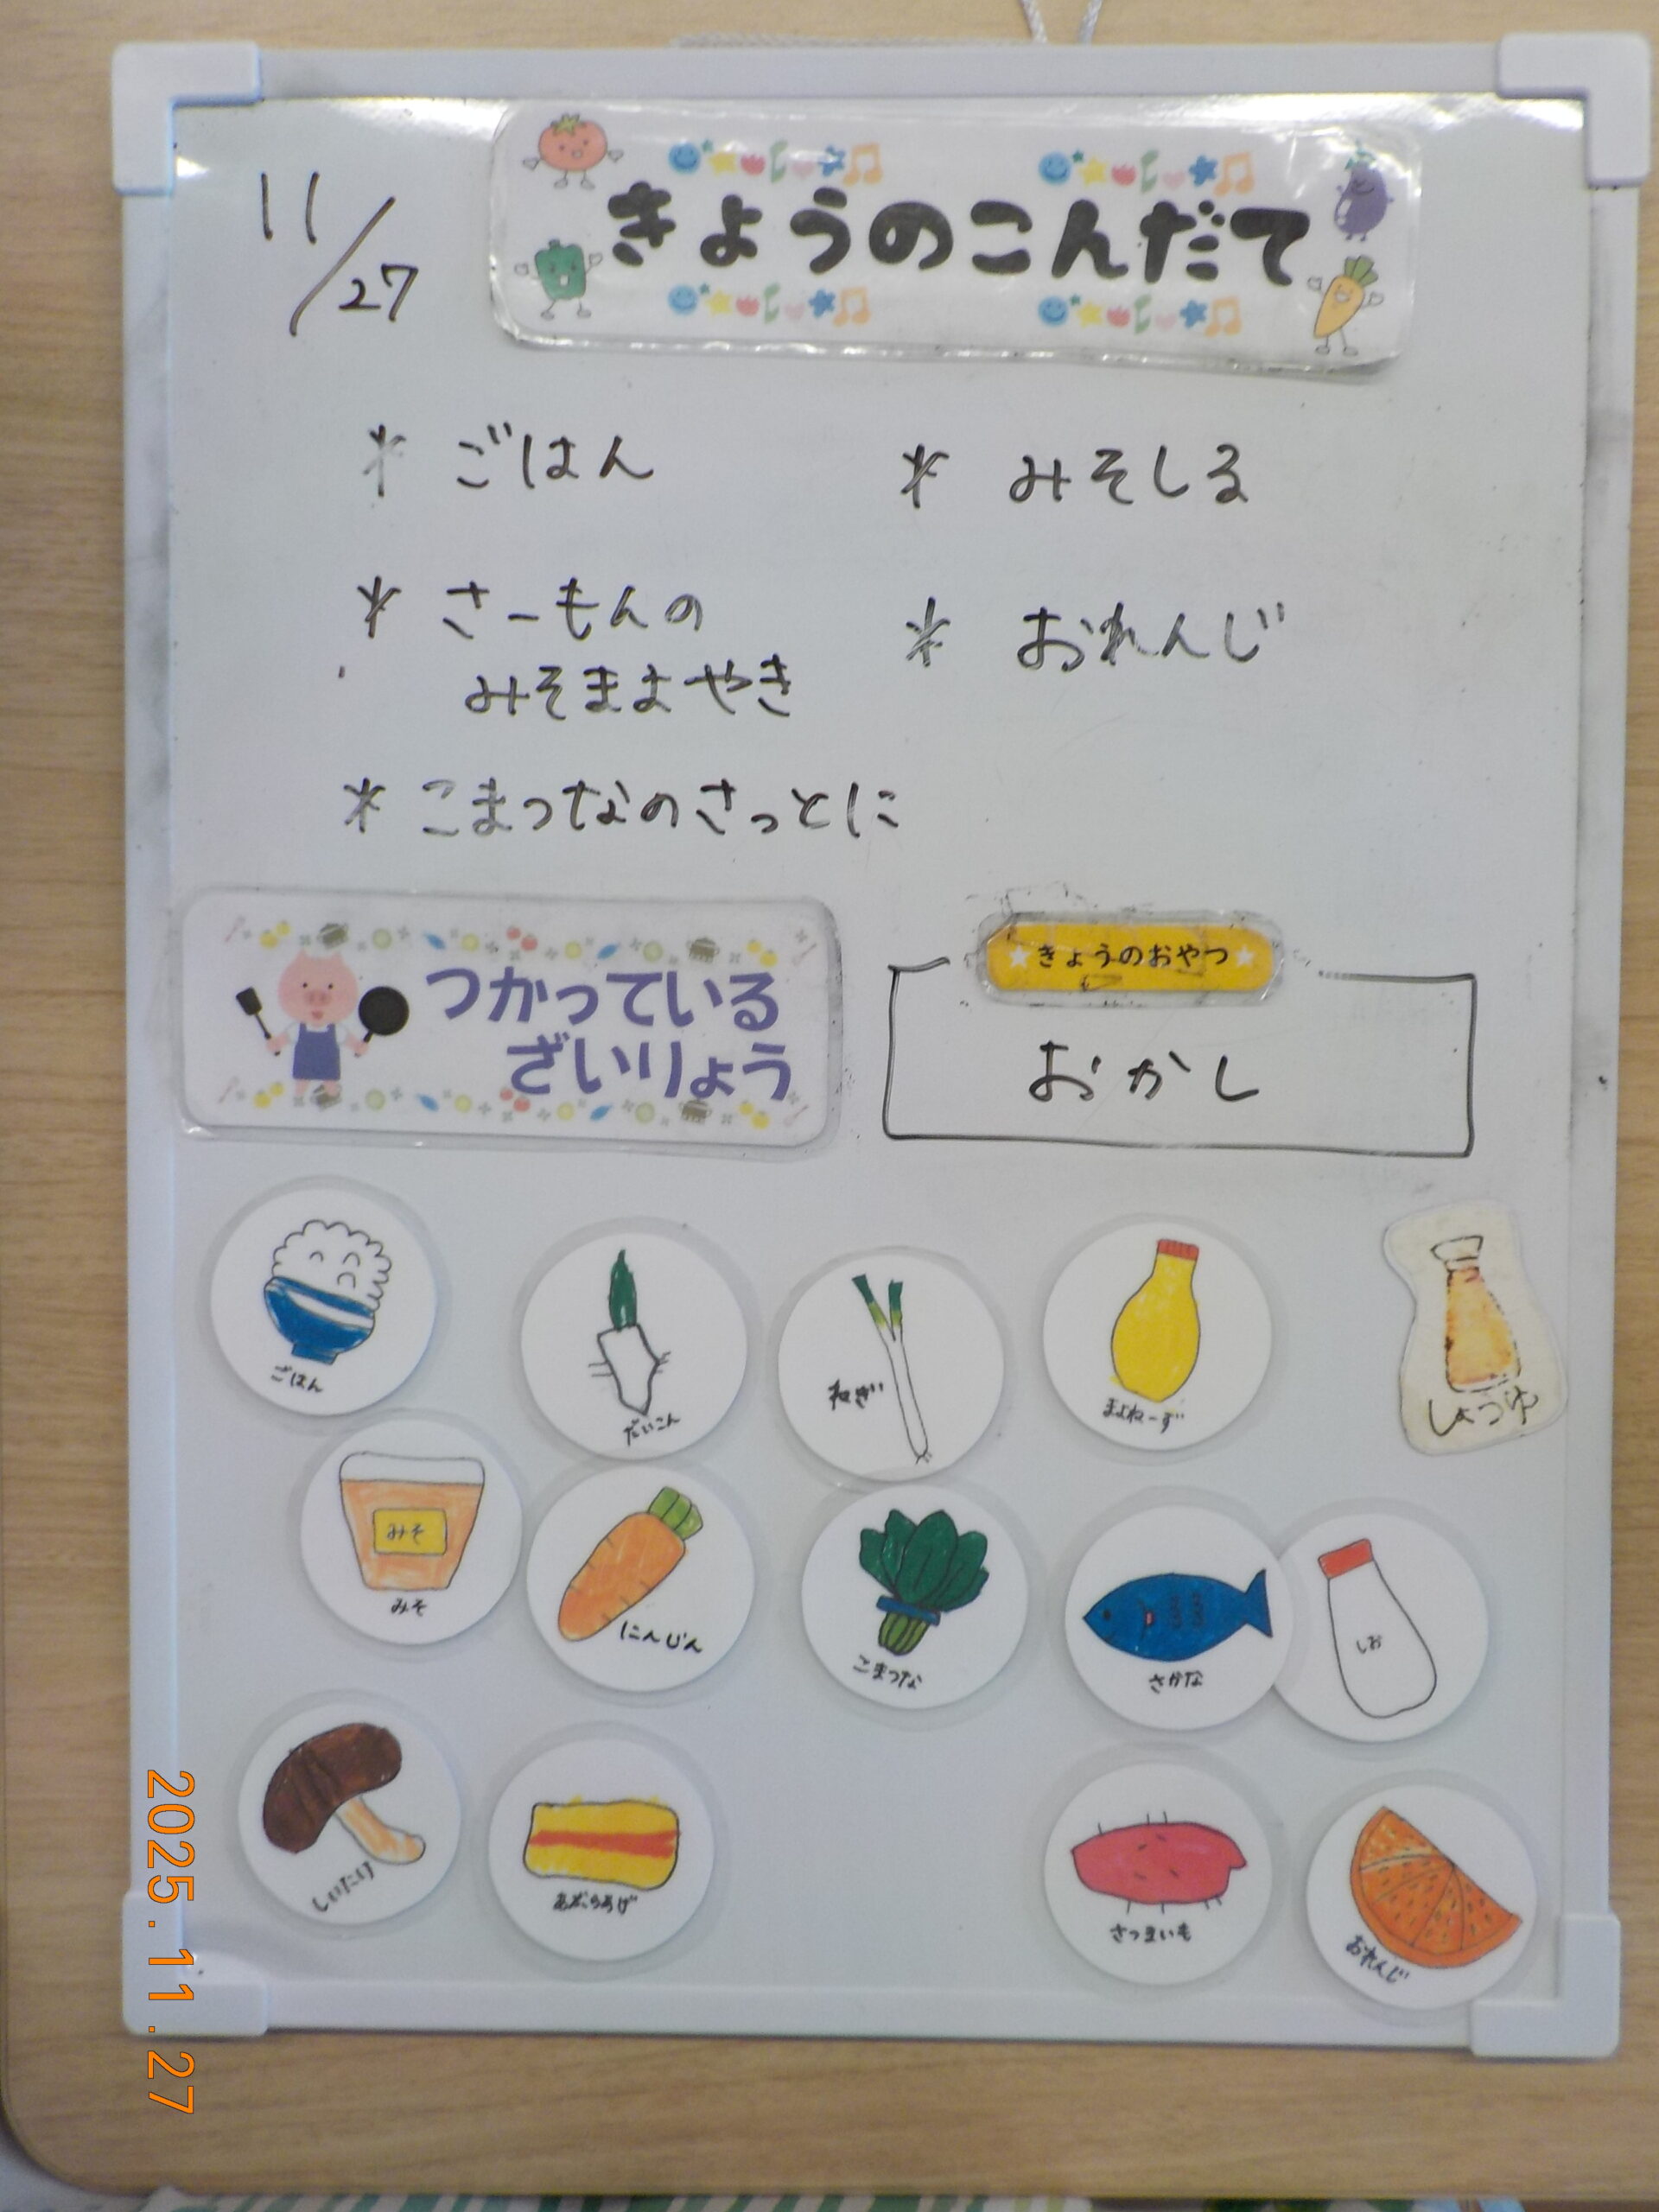 11/27
きょうのこんだて
* ごはん
* みそしる
* さーもんの
みそまよやき
* おれんじ
* こまつなのさっとに
つかっている
ざいりょう
きょうのおやつ
おかし
ごはん
だいこん
ねぎ
まよねーず
しょうゆ
みそ
みそ
にんじん
こまつな
さかな
しお
しいたけ
あぶらあげ
さつまいも
おれんじ
2025.11.27